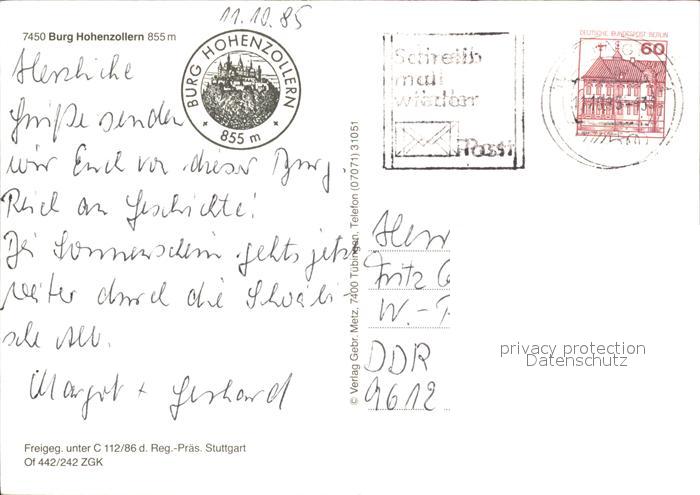 11.10.85
7450 Burg Hohenzollern 855 m
BURG HOHENZOLLERN
855 m
Herzliche
Grüße senden
wir Euch von dieser Burg.
Reich an Geschichte!
Bei Sonnenschein gehts jetzt
weiter durch die Schwäbi-
sche Alb.
Margot + Gerhard
Freigeg. unter C 112/86 d. Reg.-Präs. Stuttgart
Of 442/242 ZGK
© Verlag Gebr. Metz, 7400 Tübingen, Telefon (07071) 31051
Schreib
mal
wieder
Post
DEUTSCHE BUNDESPOST BERLIN
60
Herrn
Fritz
W.-
DDR
9612
privacy protection
Datenschutz